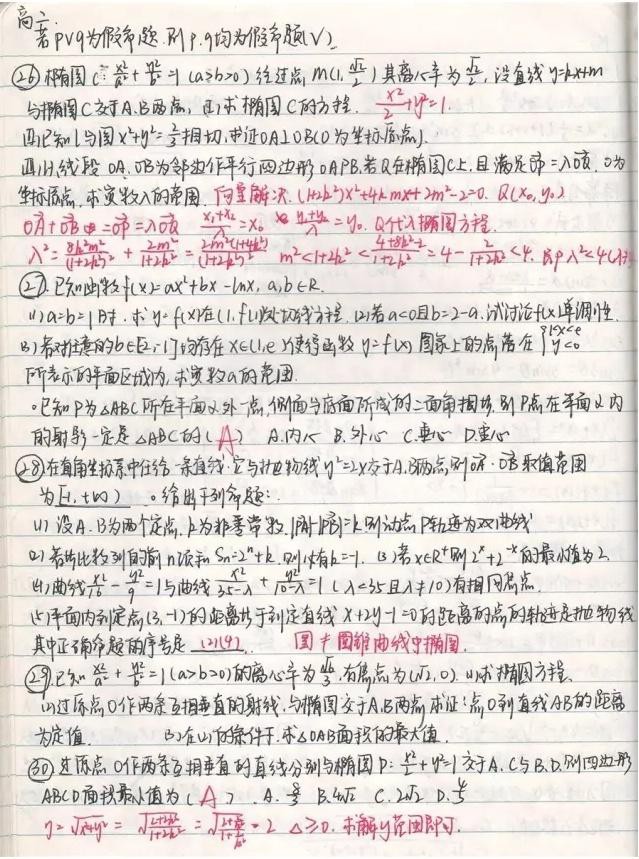 高二
若p∨q为假命题,则p.q均为假命题(√)
㉖椭圆C: x²/a²+y²/b²=1(a>b>0)经过点M(1,√2/2)其离心率为√2/2,设直线y=kx+m
与椭圆C交于A.B两点,(1)求椭圆C的方程. x²/2+y²=1.
(2)已知l与圆x²+y²=2/3相切,求证OA⊥OB(O为坐标原点).
(3)以线段OA,OB为邻边作平行四边形OAPB,若Q在椭圆C上,且满足OP=λOQ,O为
坐标原点,求实数λ的范围.向量解决.(1+2k²)x²+4kmx+2m²-2=0. Q(x₀,y₀)
OA+OB=OP=λOQ (x₁+x₂)/λ=x₀ (y₁+y₂)/λ=y₀. Q代入椭圆方程.
λ²=8k²m²/(1+2k²)²+2m²/(1+2k²)²=2m²(1+4k²)/(1+2k²)² m²<1+2k²<(4+8k²-2)/(1+2k²)=4-2/(1+2k²)<4. 即λ²<4
㉗已知函数f(x)=ax²+bx-lnx, a,b∈R.
(1)a=b=1时,求y=f(x)在(1,f(1))处切线方程.(2)若a<0且b=2-a,试讨论f(x)单调性.
(3)若对任意的b∈[-2,-1]均存在x∈(1,e)使得函数y=f(x)图象上的点落在{1<x<e y<0
所表示的平面区域内,求实数a的范围.
。已知P为△ABC所在平面α外一点,侧面与底面所成的二面角相等,则P点在平面α内
的射影一定是△ABC的(A) A.内心 B.外心 C.重心 D.垂心
㉘在直角坐标系中任给一条直线,它与抛物线y²=2x交于A.B两点,则OA·OB取值范围
为[-1,+∞) 。给出下列命题:
(1)设A.B为两个定点,k为非零常数,|PA|-|PB|=k则动点P轨迹为双曲线
(2)若等比数列的前n项和Sn=2ⁿ+k,则必有k=-1. (3)若x∈R⁺则2ˣ+2⁻ˣ的最小值为2
(4)曲线x²/16-y²/9=1与曲线x²/(35-λ)+y²/(10-λ)=1(λ<35且λ≠10)有相同焦点.
(5)平面内到定点(3,-1)的距离等于到定直线x+2y-1=0的距离的点的轨迹是抛物线
其中正确命题的序号是 (2)(4) 圆≠圆锥曲线中椭圆.
㉙已知x²/a²+y²/b²=1(a>b>0)的离心率为√6/3.右焦点为(√2,0).(1)求椭圆方程.
(2)过原点O作两条互相垂直的射线,与椭圆交于A.B两点,求证:点O到直线AB的距离
为定值. (3)在(2)的条件下,求△OAB面积的最大值.
㉚过原点O作两条互相垂直的直线分别与椭圆P: x²/2+y²=1交于A.C与B.D.则四边形
ABCD面积最小值为(A) A.8/3 B.4√2 C.2√2 D.4/3